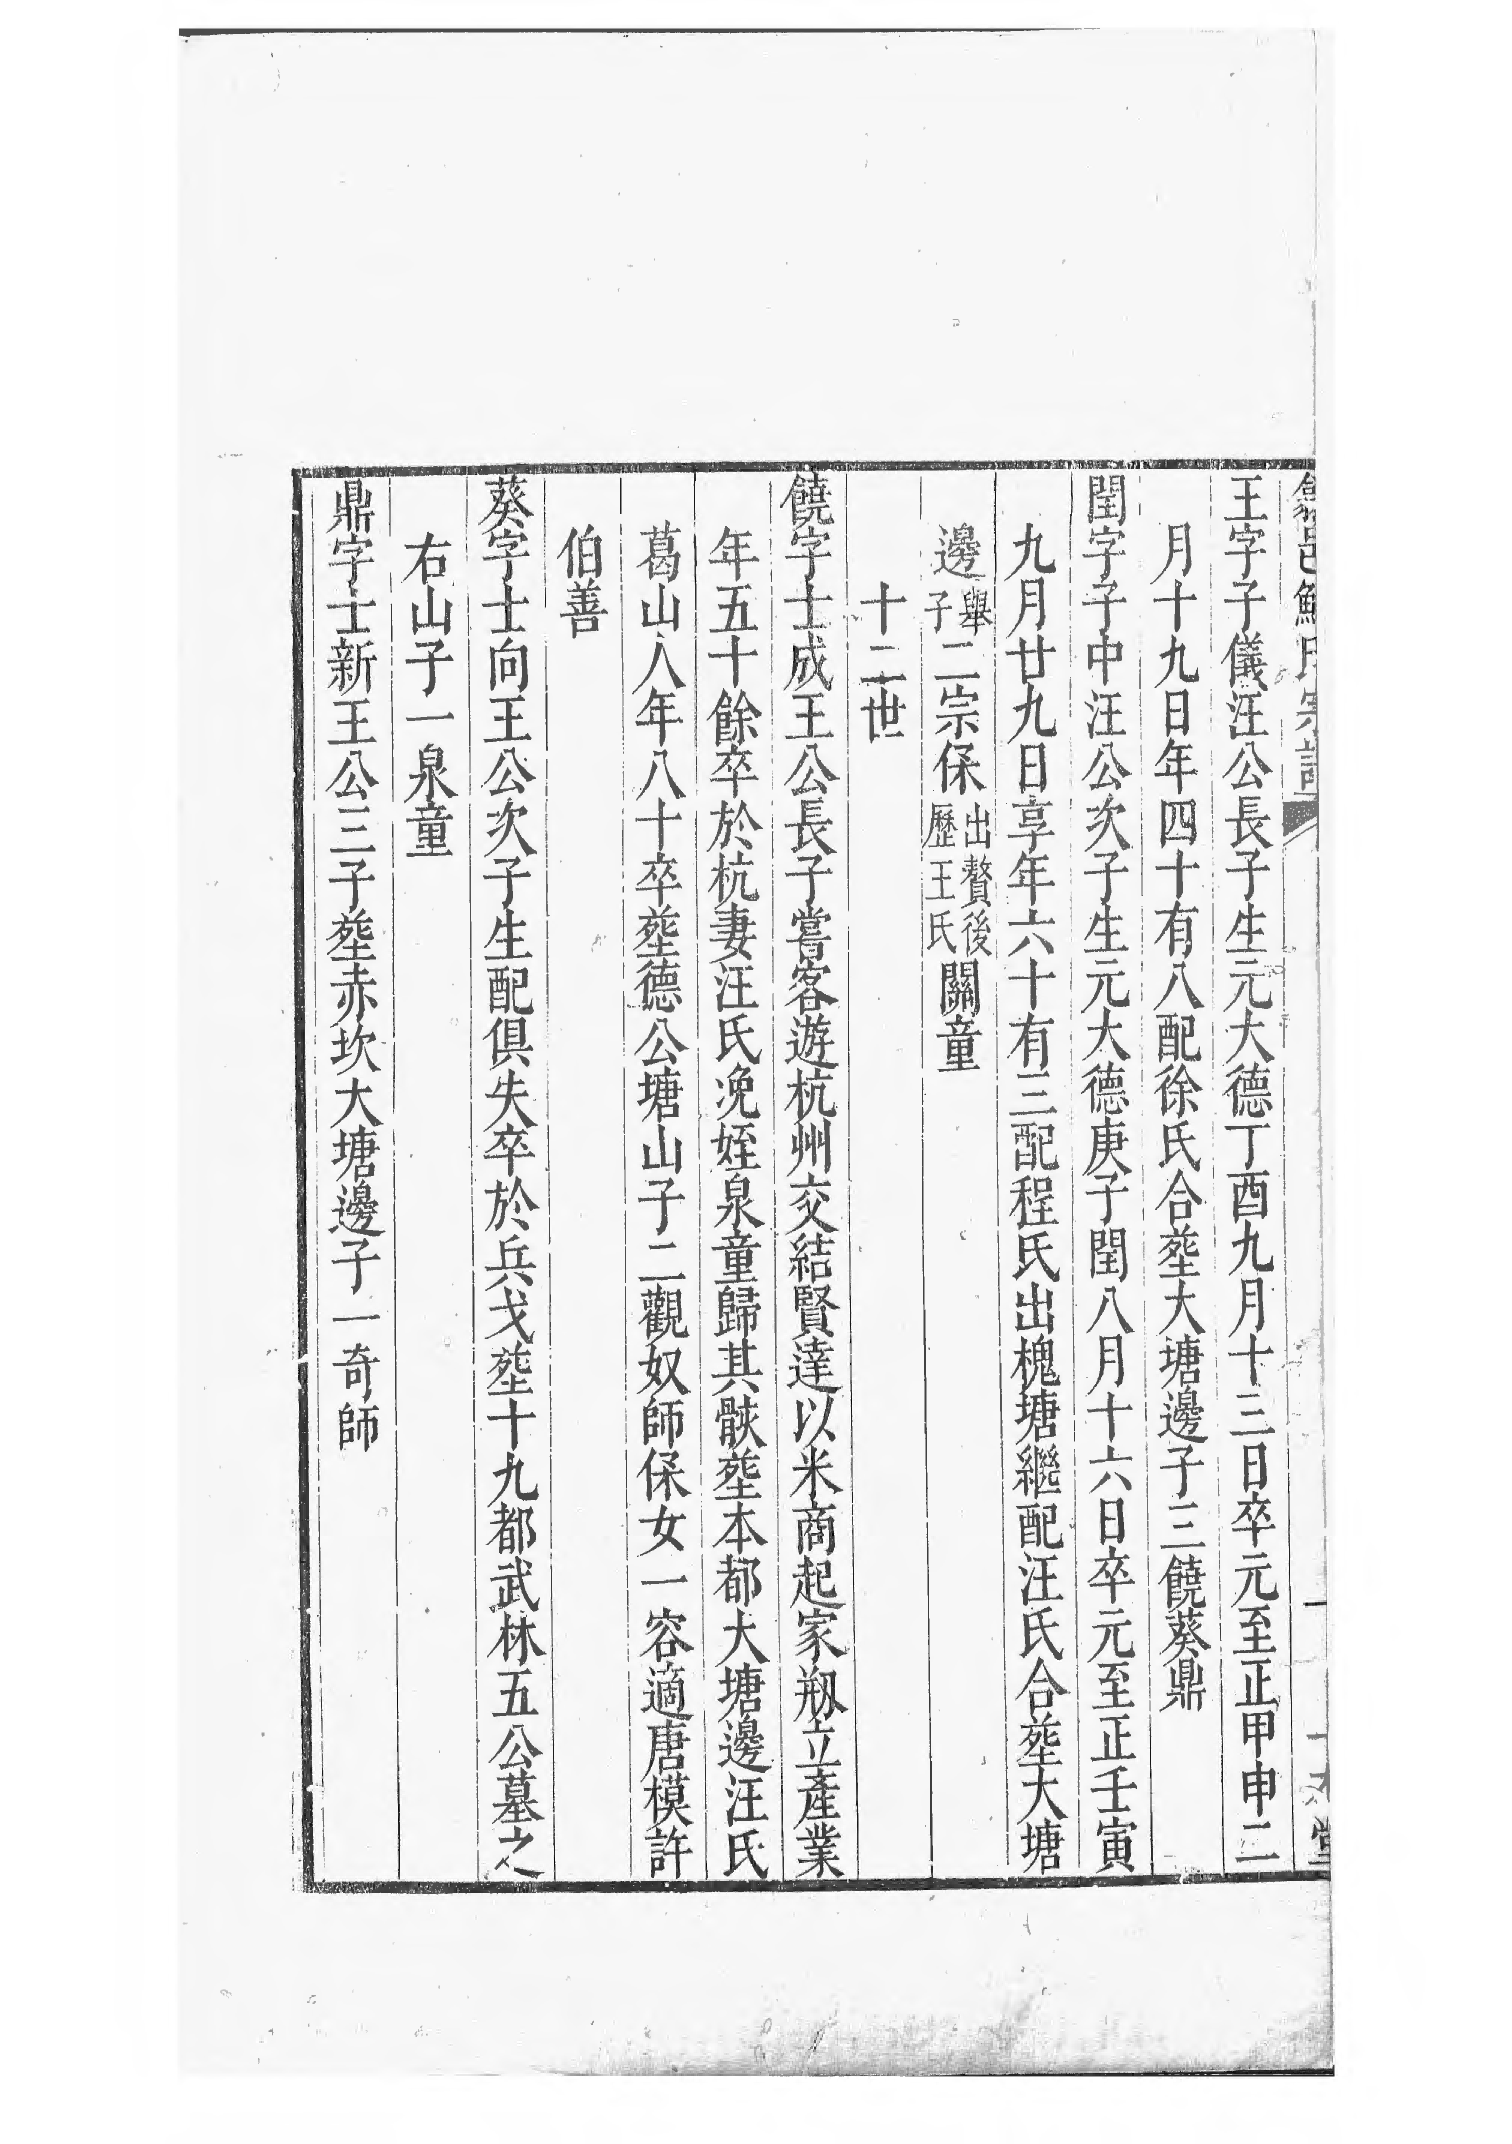 歙邑鮑氏宗譜
王字子儀汪公長子生元大德丁酉九月十三日卒元至正甲申二
月十九日年四十有八配徐氏合塟大塘邊子三饒葵鼎
閏字子中汪公次子生元大德庚子閏八月十六日卒元至正壬寅
九月廿九日享年六十有三配程氏出槐塘繼配汪氏合塟大塘
邊舉子二宗保出贅後歷王氏關童
十二世
饒字士成王公長子嘗客遊杭州交結賢達以米商起家剏立產業
年五十餘卒於杭妻汪氏俛姪泉童歸其骸塟本都大塘邊汪氏
葛山人年八十卒塟德公塘山子二觀奴師保女一容適唐模許
伯善
葵字士向王公次子生配俱失卒於兵戈塟十九都武林五公墓之
右山子一泉童
鼎字士新王公三子塟赤坎大塘邊子一奇師